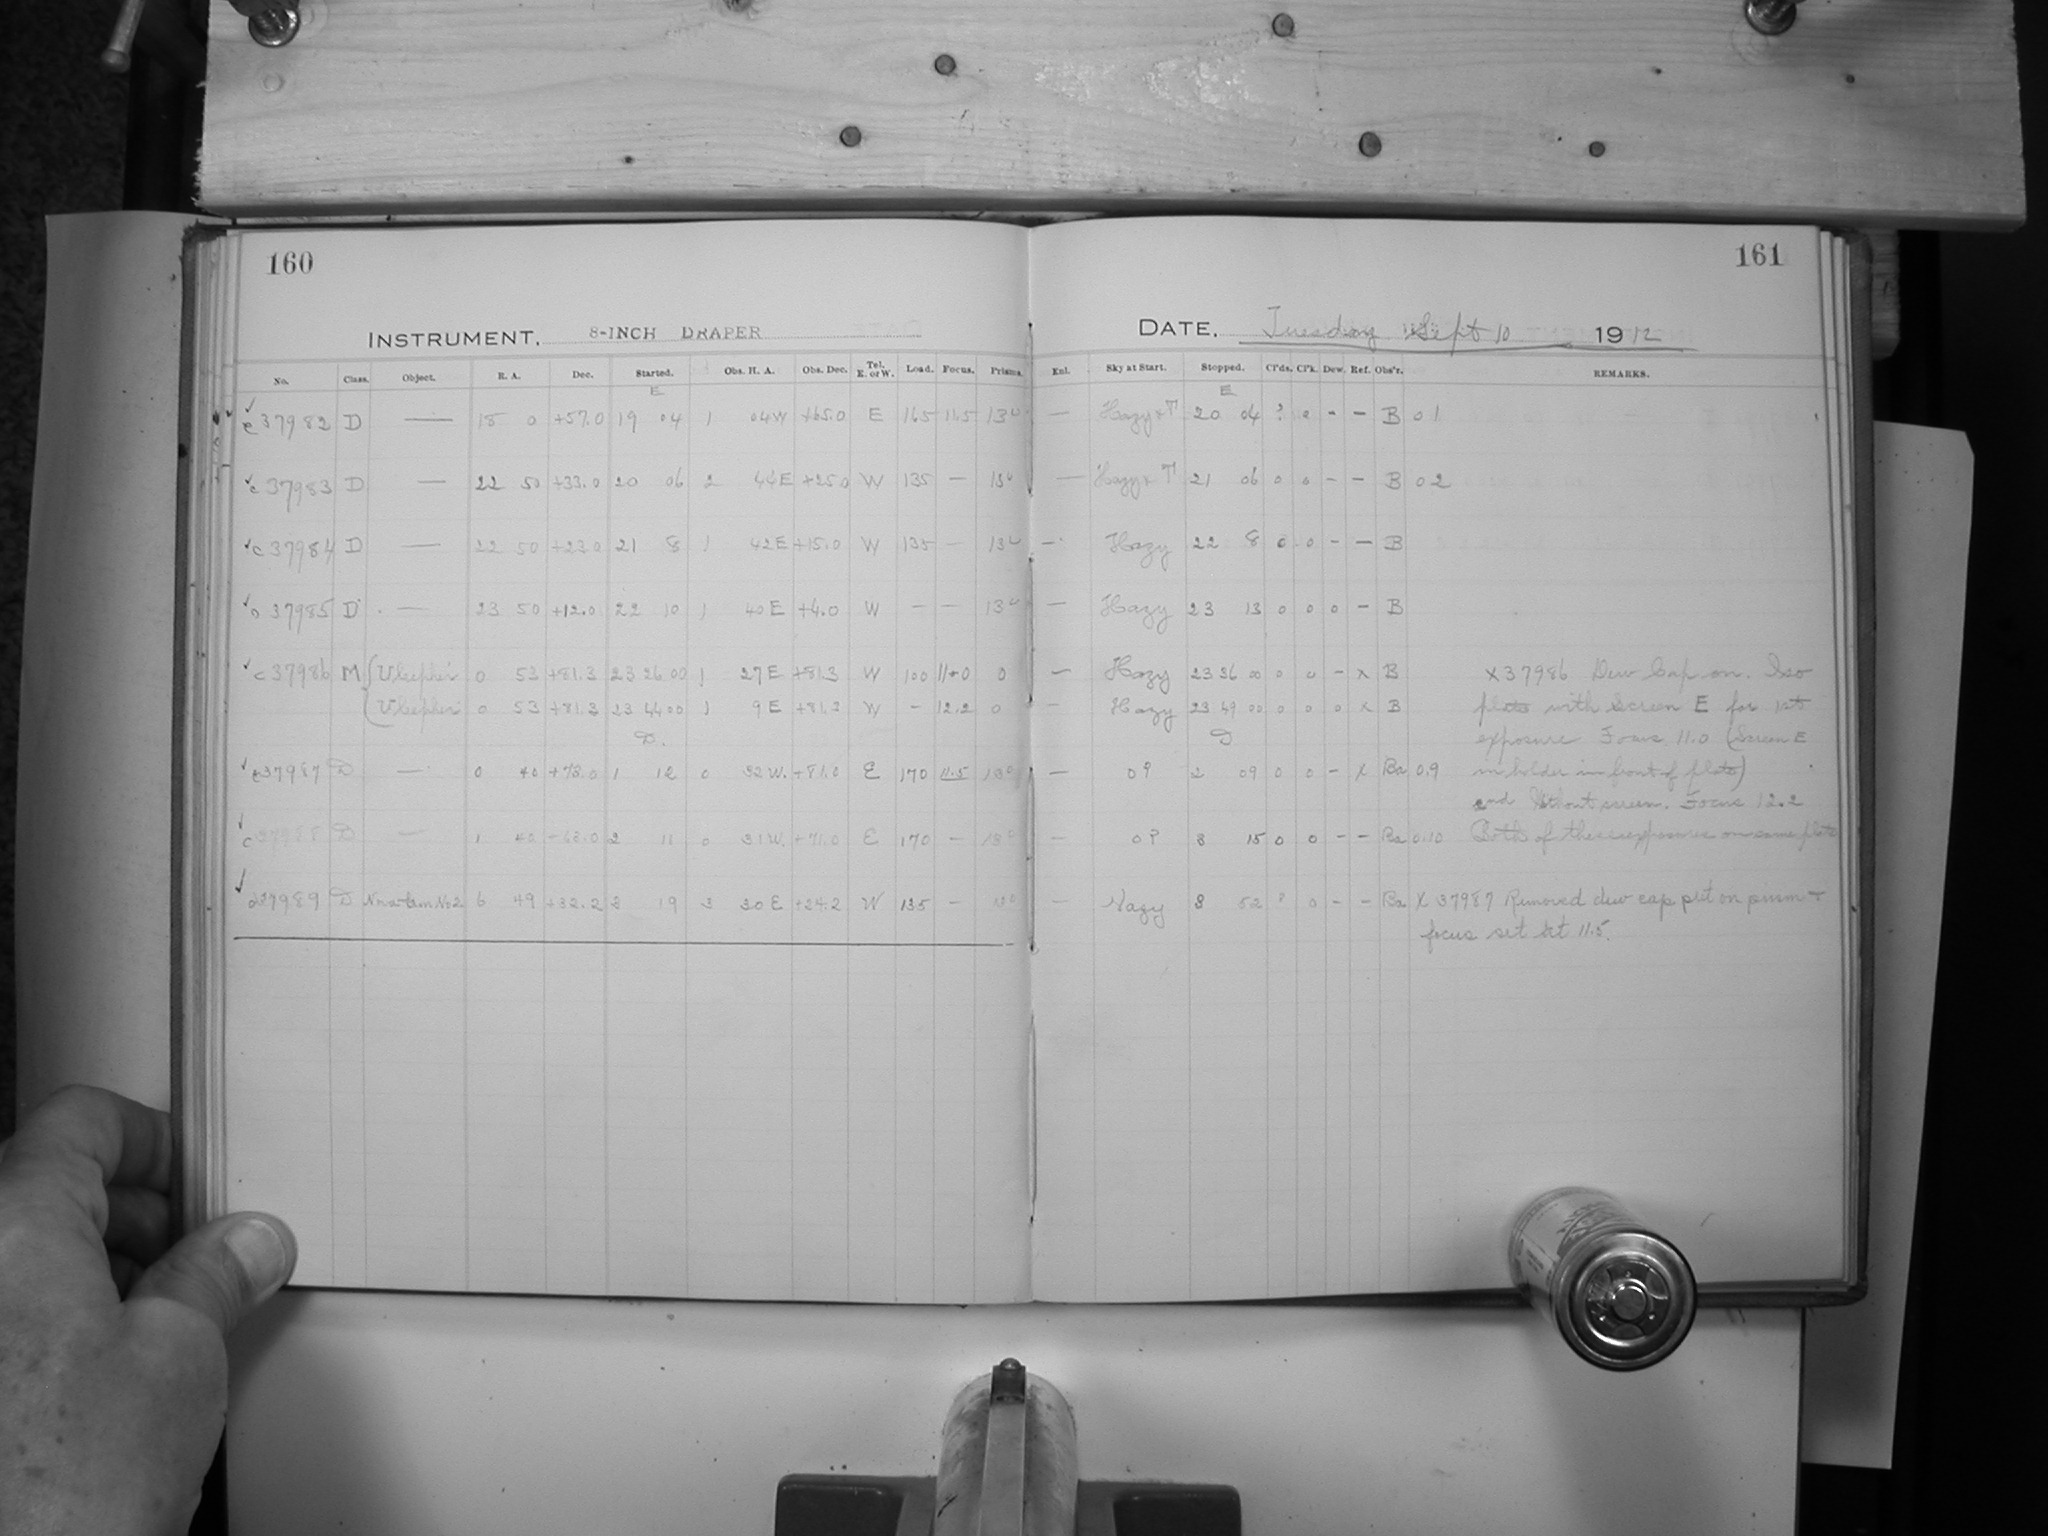 160
161
INSTRUMENT. 8-INCH DRAPER
DATE. Tuesday Sept 10 1912
No. Class. Object. R. A. Dec. Started. Obs. H. A. Obs. Dec. Tel. E. or W. Load. Focus. Prisms. Enl. Sky at Start. Stopped. Cl'ds. Cl'k. Dew. Ref. Obs'r. REMARKS.
E E
c 37982 D — 18 0 +57.0 19 04 1 04 W +65.0 E 165 11.5 13 — Hazy & T 20 04 ? 0 - - B 01
c 37983 D — 22 50 +33.0 20 06 2 44 E +25.0 W 135 — 13 — Hazy & T 21 06 0 0 - - B 02
c 37984 D — 22 50 +23.0 21 8 1 42 E +15.0 W 135 — 13 — Hazy 22 8 0 0 - - B
37985 D — 23 50 +12.0 22 10 1 40 E +4.0 W — — 13 — Hazy 23 13 0 0 0 - B
c 37986 M U Cephei 0 53 +81.3 23 26 00 1 27 E +81.3 W 100 11.0 0 — Hazy 23 36 00 0 0 - x B X 37986 Dew Cap on. Iso
U Cephei 0 53 +81.3 23 44 00 1 9 E +81.3 W - 12.2 0 — Hazy 23 49 00 0 0 0 x B plate with Screen E for 1st
D. D exposure Focus 11.0 (Screen E
c 37987 D — 0 40 +73.0 1 12 0 32 W. +81.0 E 170 11.5 13 — 0 ? 2 09 0 0 - x Ba 0.9 in holder in front of plate)
and without screen. Focus 12.2
c 37988 D — 1 40 +63.0 2 11 0 31 W. +71.0 E 170 — 13 — 0 ? 3 15 0 0 - - Ba 0.10 Both of these exposures on same plate
37989 D No 2 6 49 +32.2 3 19 3 30 E +24.2 W 135 — 13 — Hazy 3 52 ? 0 - - Ba X 37987 Removed dew cap put on prism +
focus set at 11.5.